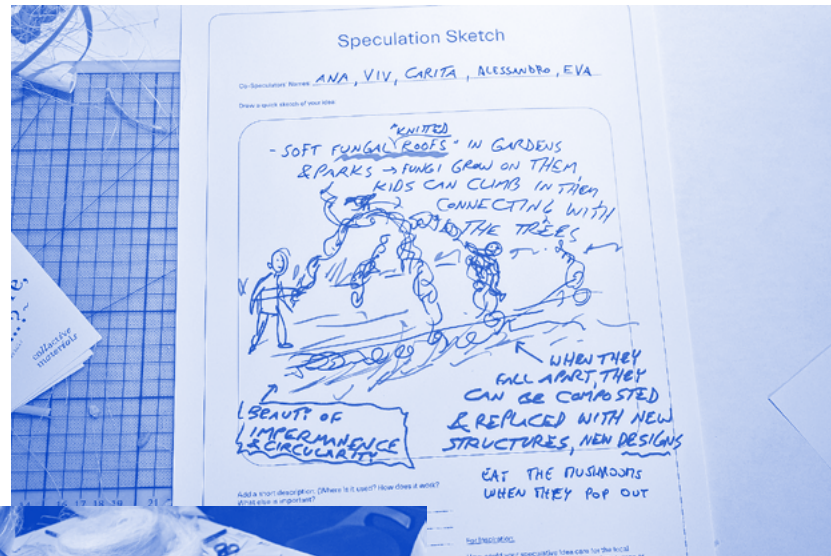 Speculation Sketch
Co-Speculators' Names ANA, VIV, CARITA, ALESSANDRO, EVA
Draw a quick sketch of your idea
"KNITTED
- SOFT FUNGAL ROOFS" IN GARDENS
& PARKS → FUNGI GROW ON THEM,
KIDS CAN CLIMB IN THEM
CONNECTING WITH
THE TREES
WHEN THEY
FALL APART, THEY
CAN BE COMPOSTED
& REPLACED WITH NEW
STRUCTURES, NEW DESIGNS
BEAUTY OF
IMPERMANENCE
& CIRCULARITY
EAT THE MUSHROOMS
WHEN THEY POP OUT
Add a short description. (Where is it used? How does it work?
What else is important?
For inspiration:
collective
16 17 18 19 21